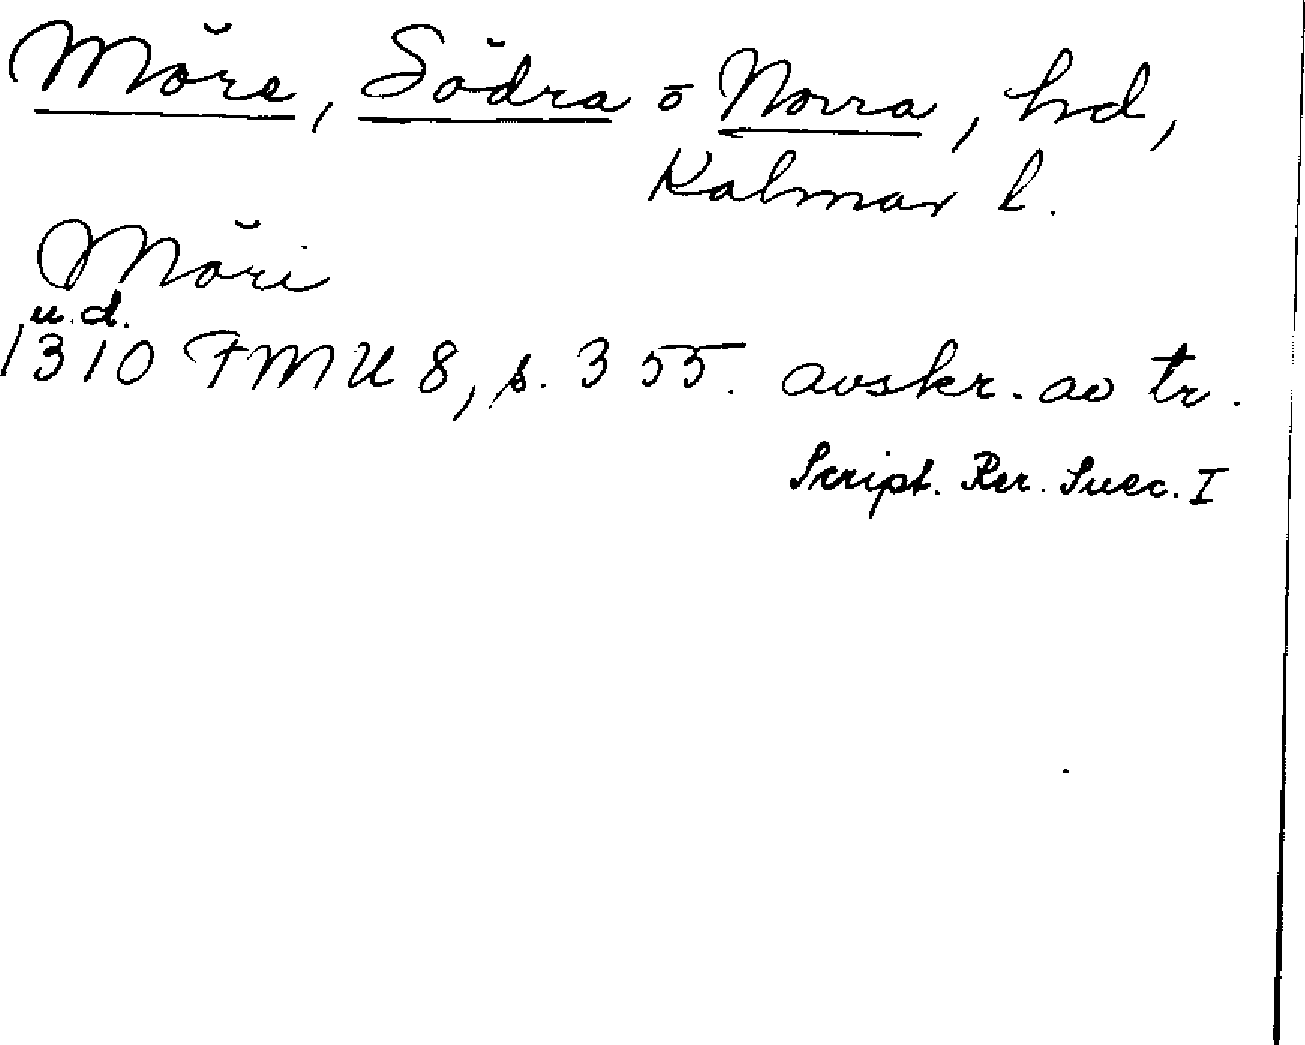 Möre, Södra o Norra, hd,
Kalmar l.
Möri
u.d.
1310 FMU 8, s. 355. avskr. av tr.
Script. Rer. Suec. I